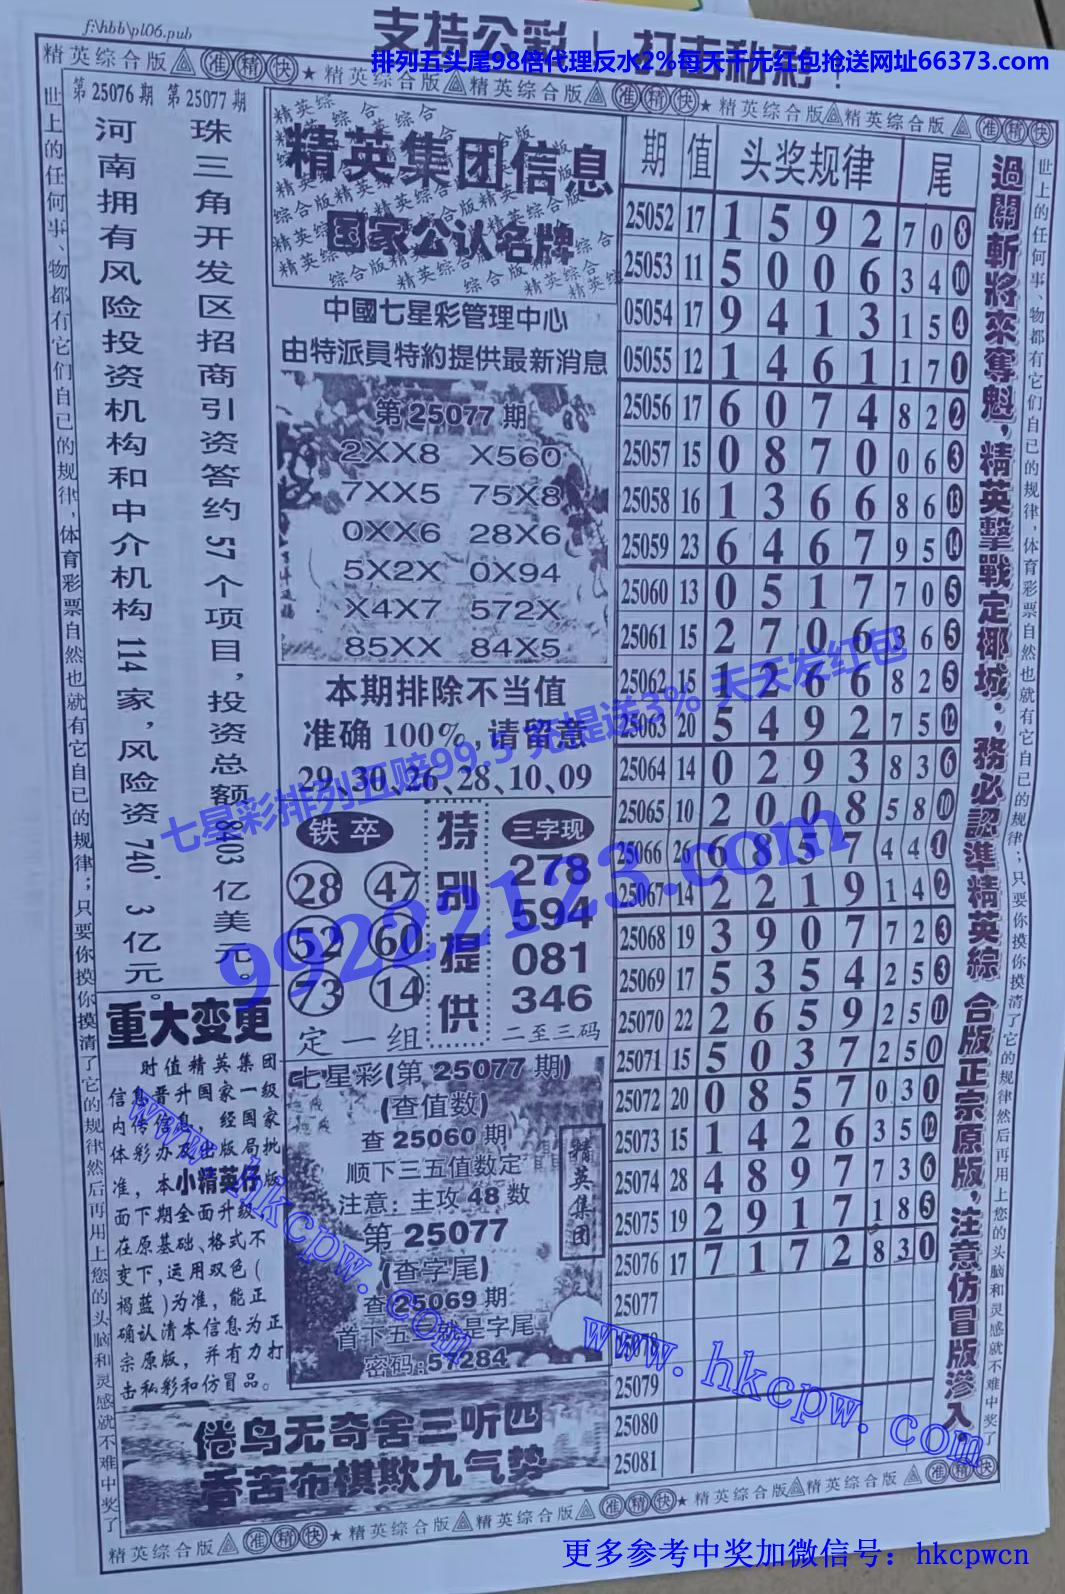 f:\hbb\pl06.pub
支持公彩！打击私彩！
排列五头尾98倍代理反水2%每天千元红包抢送网址66373.com
精英综合版 准精快 ★ 精英综合版 精英综合版 准精快 ★ 精英综合版 精英综合版 准精快
第25076期 第25077期
珠三角开发区招商引资答约57个项目，投资总额8403亿美元。
河南拥有风险投资机构和中介机构114家，风险资740.3亿元。
重大变更
时值精英集团
信息晋升国家一级
内传信息，经国家
体彩办及出版局批
准，本小精英仔版
面下期全面升级，
在原基础、格式不
变下，运用双色(
褐蓝)为准，能正
确认清本信息为正
宗原版，并有力打
击私彩和仿冒品。
精英集团信息
国家公认名牌
中國七星彩管理中心
由特派員特約提供最新消息
第25077期
2XX8 X560
7XX5 75X8
0XX6 28X6
5X2X 0X94
X4X7 572X
85XX 84X5
本期排除不当值
准确100%,请留意
29、30、26、28、10、09
铁卒
28 47
52 60
73 14
定一组
特别提供
三字现
278
594
081
346
二至三码
七星彩(第25077期)
(查值数)
查25060期
顺下三五值数定
注意：主攻48数
第25077
(查字尾)
查25069期
首下五二期是字尾
密码:57284
精英集团
倦鸟无奇舍三听四
香苦布棋欺九气势
期 值 头奖规律 尾
25052 17 1 5 9 2 7 0 8
25053 11 5 0 0 6 3 4 10
05054 17 9 4 1 3 1 5 4
05055 12 1 4 6 1 1 7 1
25056 17 6 0 7 4 8 2 2
25057 15 0 8 7 0 0 6 3
25058 16 1 3 6 6 8 6 13
25059 23 6 4 6 7 9 5 14
25060 13 0 5 1 7 7 0 5
25061 15 2 7 0 6 3 6 5
25062 15 1 2 6 6 8 2 5
25063 20 5 4 9 2 7 5 12
25064 14 0 2 9 3 8 3 6
25065 10 2 0 0 8 5 8 10
25066 26 6 8 5 7 4 4 1
25067 14 2 2 1 9 1 4 2
25068 19 3 9 0 7 7 2 3
25069 17 5 3 5 4 2 5 3
25070 22 2 6 5 9 2 5 11
25071 15 5 0 3 7 2 5 0
25072 20 0 8 5 7 0 3 1
25073 15 1 4 2 6 3 5 12
25074 28 4 8 9 7 7 3 6
25075 19 2 9 1 7 1 8 5
25076 17 7 1 7 2 8 3 1
25077
25078
25079
25080
25081
過關斬將來奪魁，精英擊戰定椰城；務必認準精英綜合版正宗原版，注意仿冒版滲入。
世上的任何事、物都有它们自己的规律，体育彩票自然也就有它自己的规律；只要你摸你摸清了它的规律然后再用上您的头脑和灵感就不难中奖了
世上的任何事、物都有它们自己的规律，体育彩票自然也就有它自己的规律；只要你摸你摸清了它的规律然后再用上您的头脑和灵感就不难中奖了
精英综合版 准精快 ★ 精英综合版 精英综合版 准精快 ★ 精英综合版 精英综合版 准精快
七星彩排列五赔99.5 充提送3% 天天发红包
99222123.com
www.hkcpw.com
www.hkcpw.com
更多参考中奖加微信号：hkcpwcn